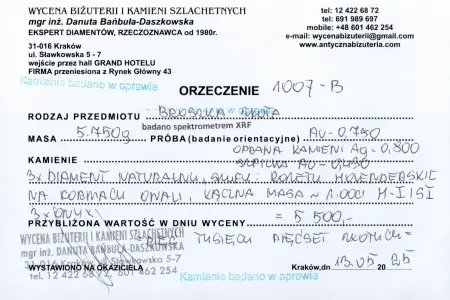 WYCENA BIŻUTERII I KAMIENI SZLACHETNYCH
mgr inż. Danuta Bańbuła-Daszkowska
EKSPERT DIAMENTÓW, RZECZOZNAWCA od 1980r.
31-016 Kraków
ul. Sławkowska 5 - 7
wejście przez hall GRAND HOTELU
FIRMA przeniesiona z Rynek Główny 43
tel: 12 422 68 72
tel: 691 989 697
mobile: +48 601 462 254
e-mail: wycenabizuterii@gmail.com
www.antycznabizuteria.com
Kamienie badano w oprawie
ORZECZENIE 1007-B
RODZAJ PRZEDMIOTU BROSZKA ZŁOTA
badano spektrometrem XRF
MASA 5.750g PRÓBA (badanie orientacyjne) Au-0.750
OPRAWA KAMIENI Ag-0,800
KAMIENIE SZPILKA Au-
3x DIAMENT NATURALNY, SZLIF: ROZETY HOLENDERSKIE
NA FORMACH OWALI, ŁĄCZNA MASA ~ 1.000ct H-I/SI
3x ONYX
PRZYBLIŻONA WARTOŚĆ W DNIU WYCENY = 5 500.-
= PIĘĆ TYSIĘCY PIĘĆSET ZŁOTYCH =
WYCENA BIŻUTERII I KAMIENI SZLACHETNYCH
mgr inż. DANUTA BAŃBUŁA-DASZKOWSKA
31-016 Kraków, ul. Sławkowska 5-7
tel. 12 422 68 72, 601 462 254
WYSTAWIONO NA OKAZICIELA
Kamienie badano w oprawie
Kraków,dn 13.05 20 25